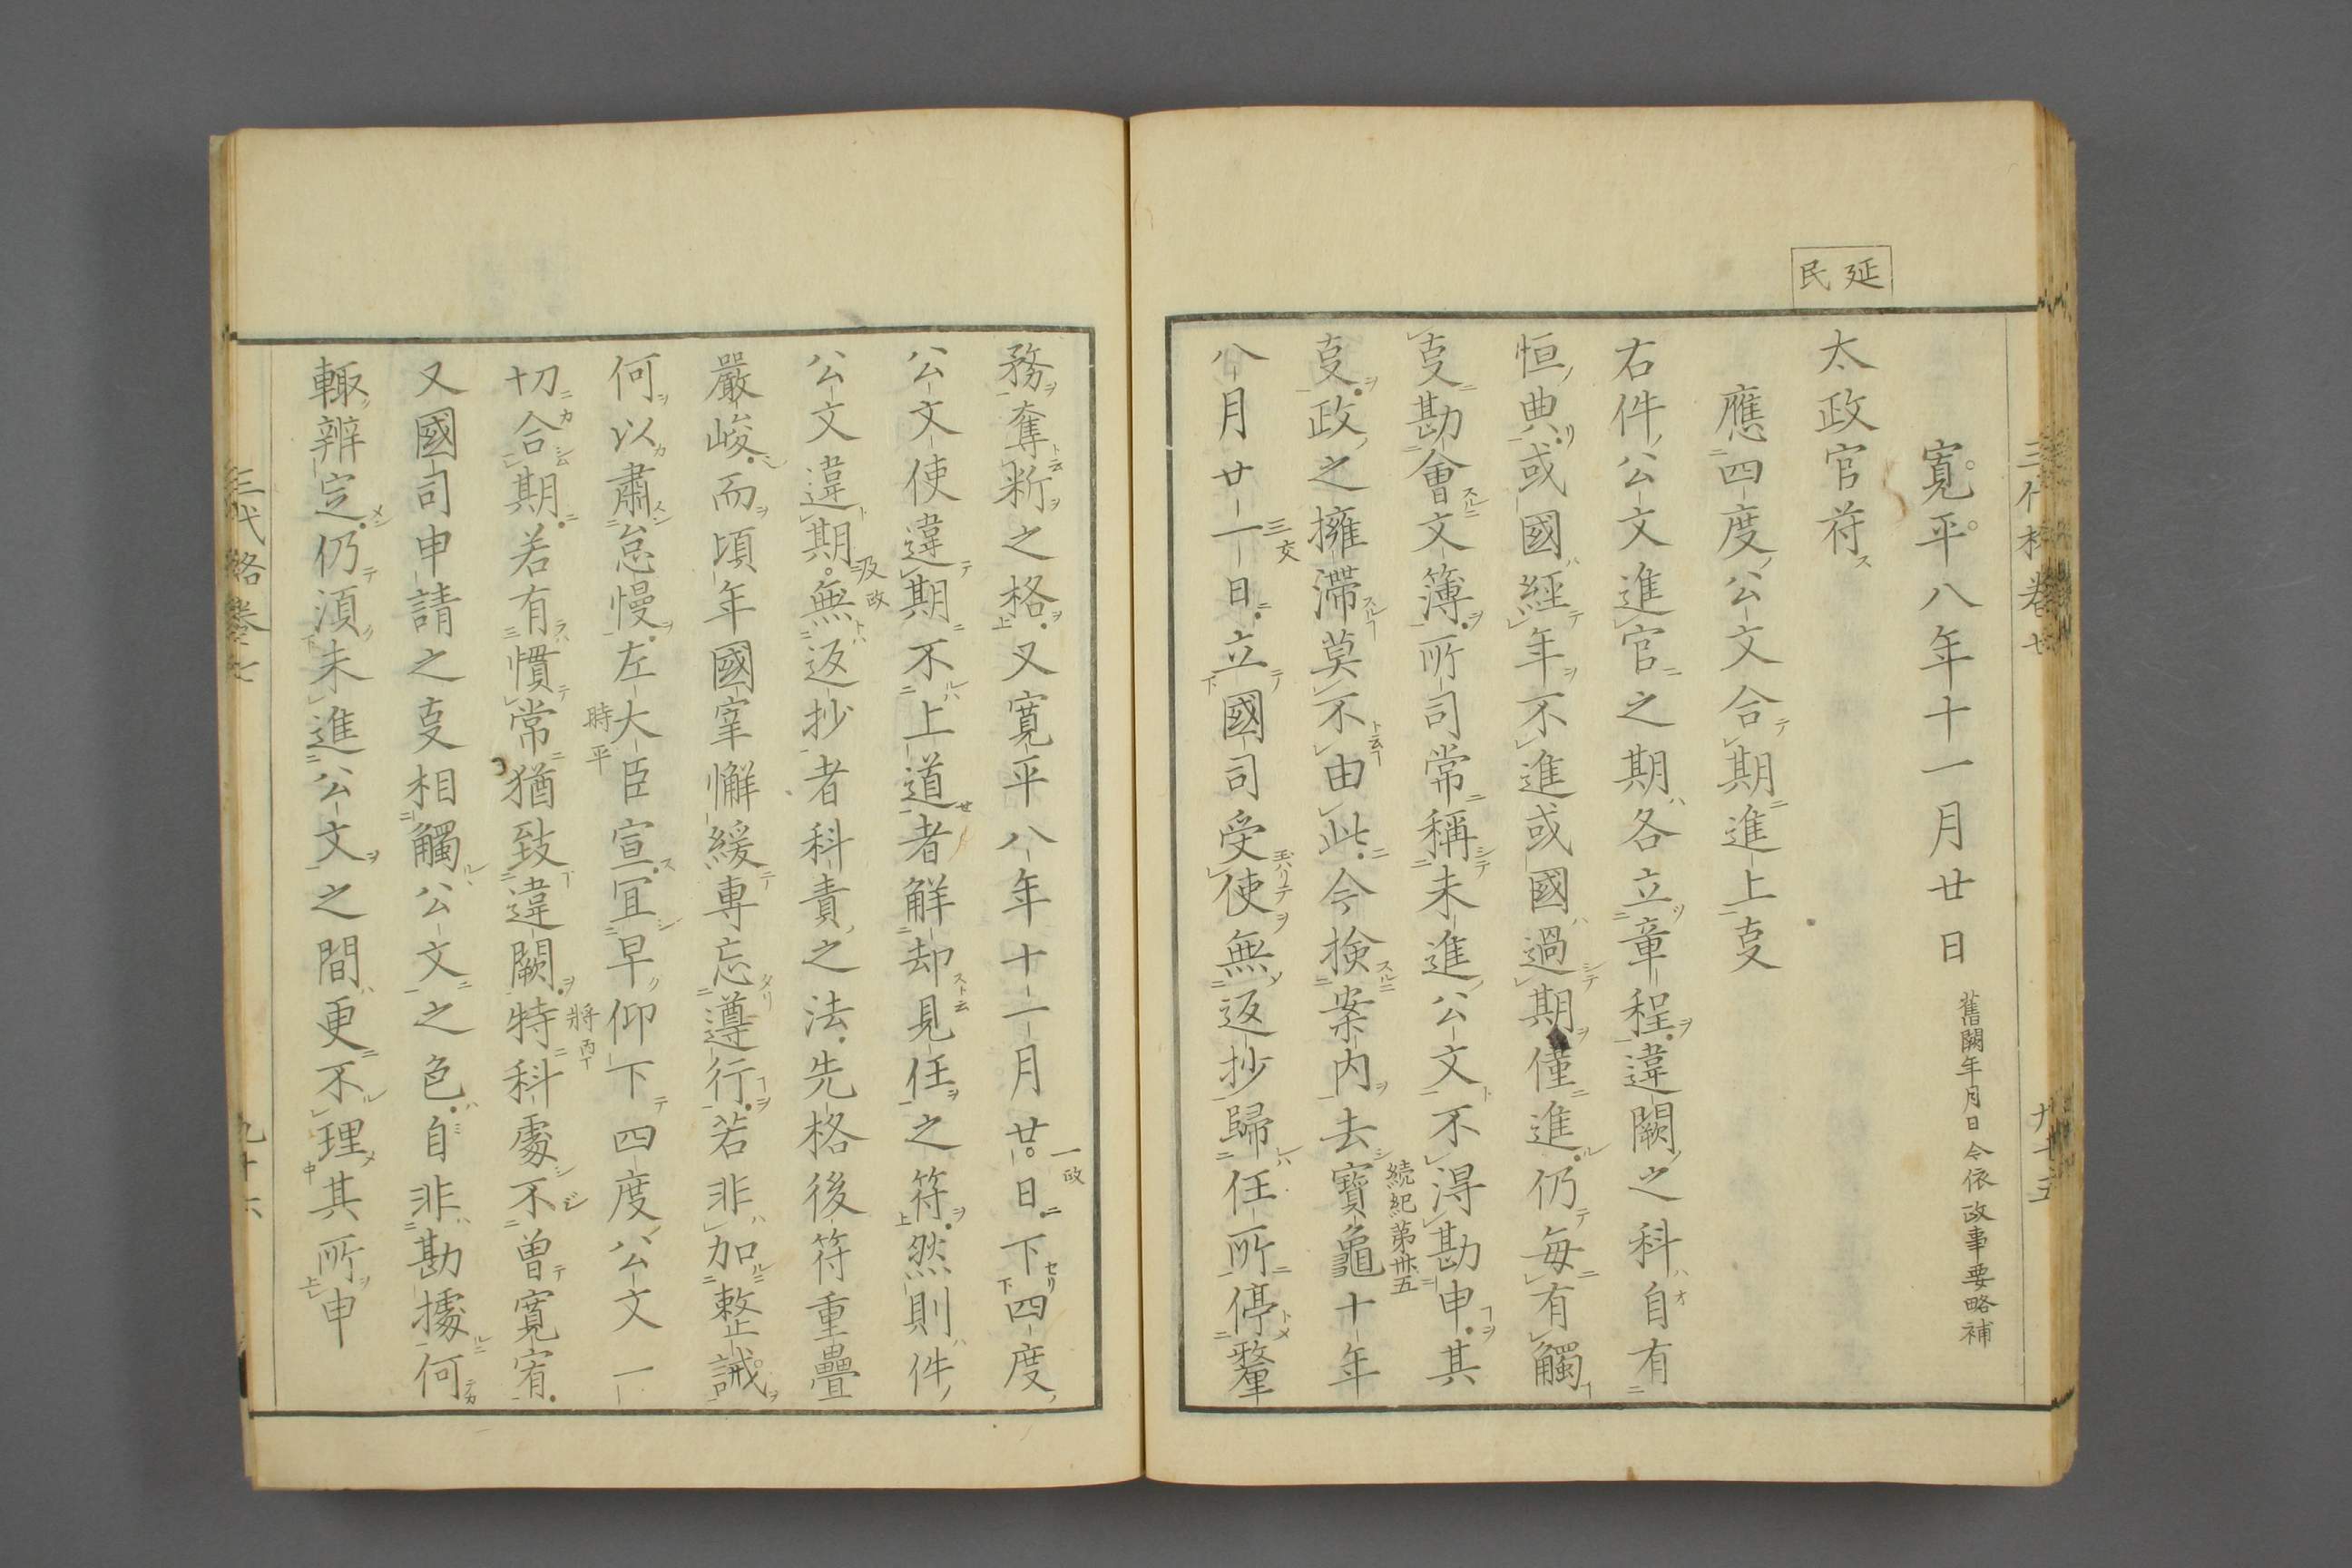 延民
寛平八年十一月廿日 舊闕年月日今依政事要略補
太政官符
應四度公文合期進上㕝
右件公文進官之期各立章程違闕之科自有
恒典或國經年不進或國過期僅進仍毎有觸
㕝勘會文簿所司常稱未進公文不得勘申其
㕝政之擁滯莫不由此今検案内去寶龜十年
続紀第卅五
八月廿一日立國司受使無返抄歸任所停釐
三交
務奪䉼之格又寛平八年十一月廿日下四度
一政
公文使違期不上道者解却見任之符然則件
公文違期無返抄者科責之法先格後符重疊
及政
嚴峻而頃年國宰懈緩専忘遵行若非加整誡
何以肅怠慢左大臣宣冝早仰下四度公文一
時平
切合期若有慣常猶致違闕特科處不曽寛宥
将丙
又國司申請之㕝相觸公文之色自非勘據何
輙辨定仍湏未進公文之間更不理其所申
三代格巻七
九十六